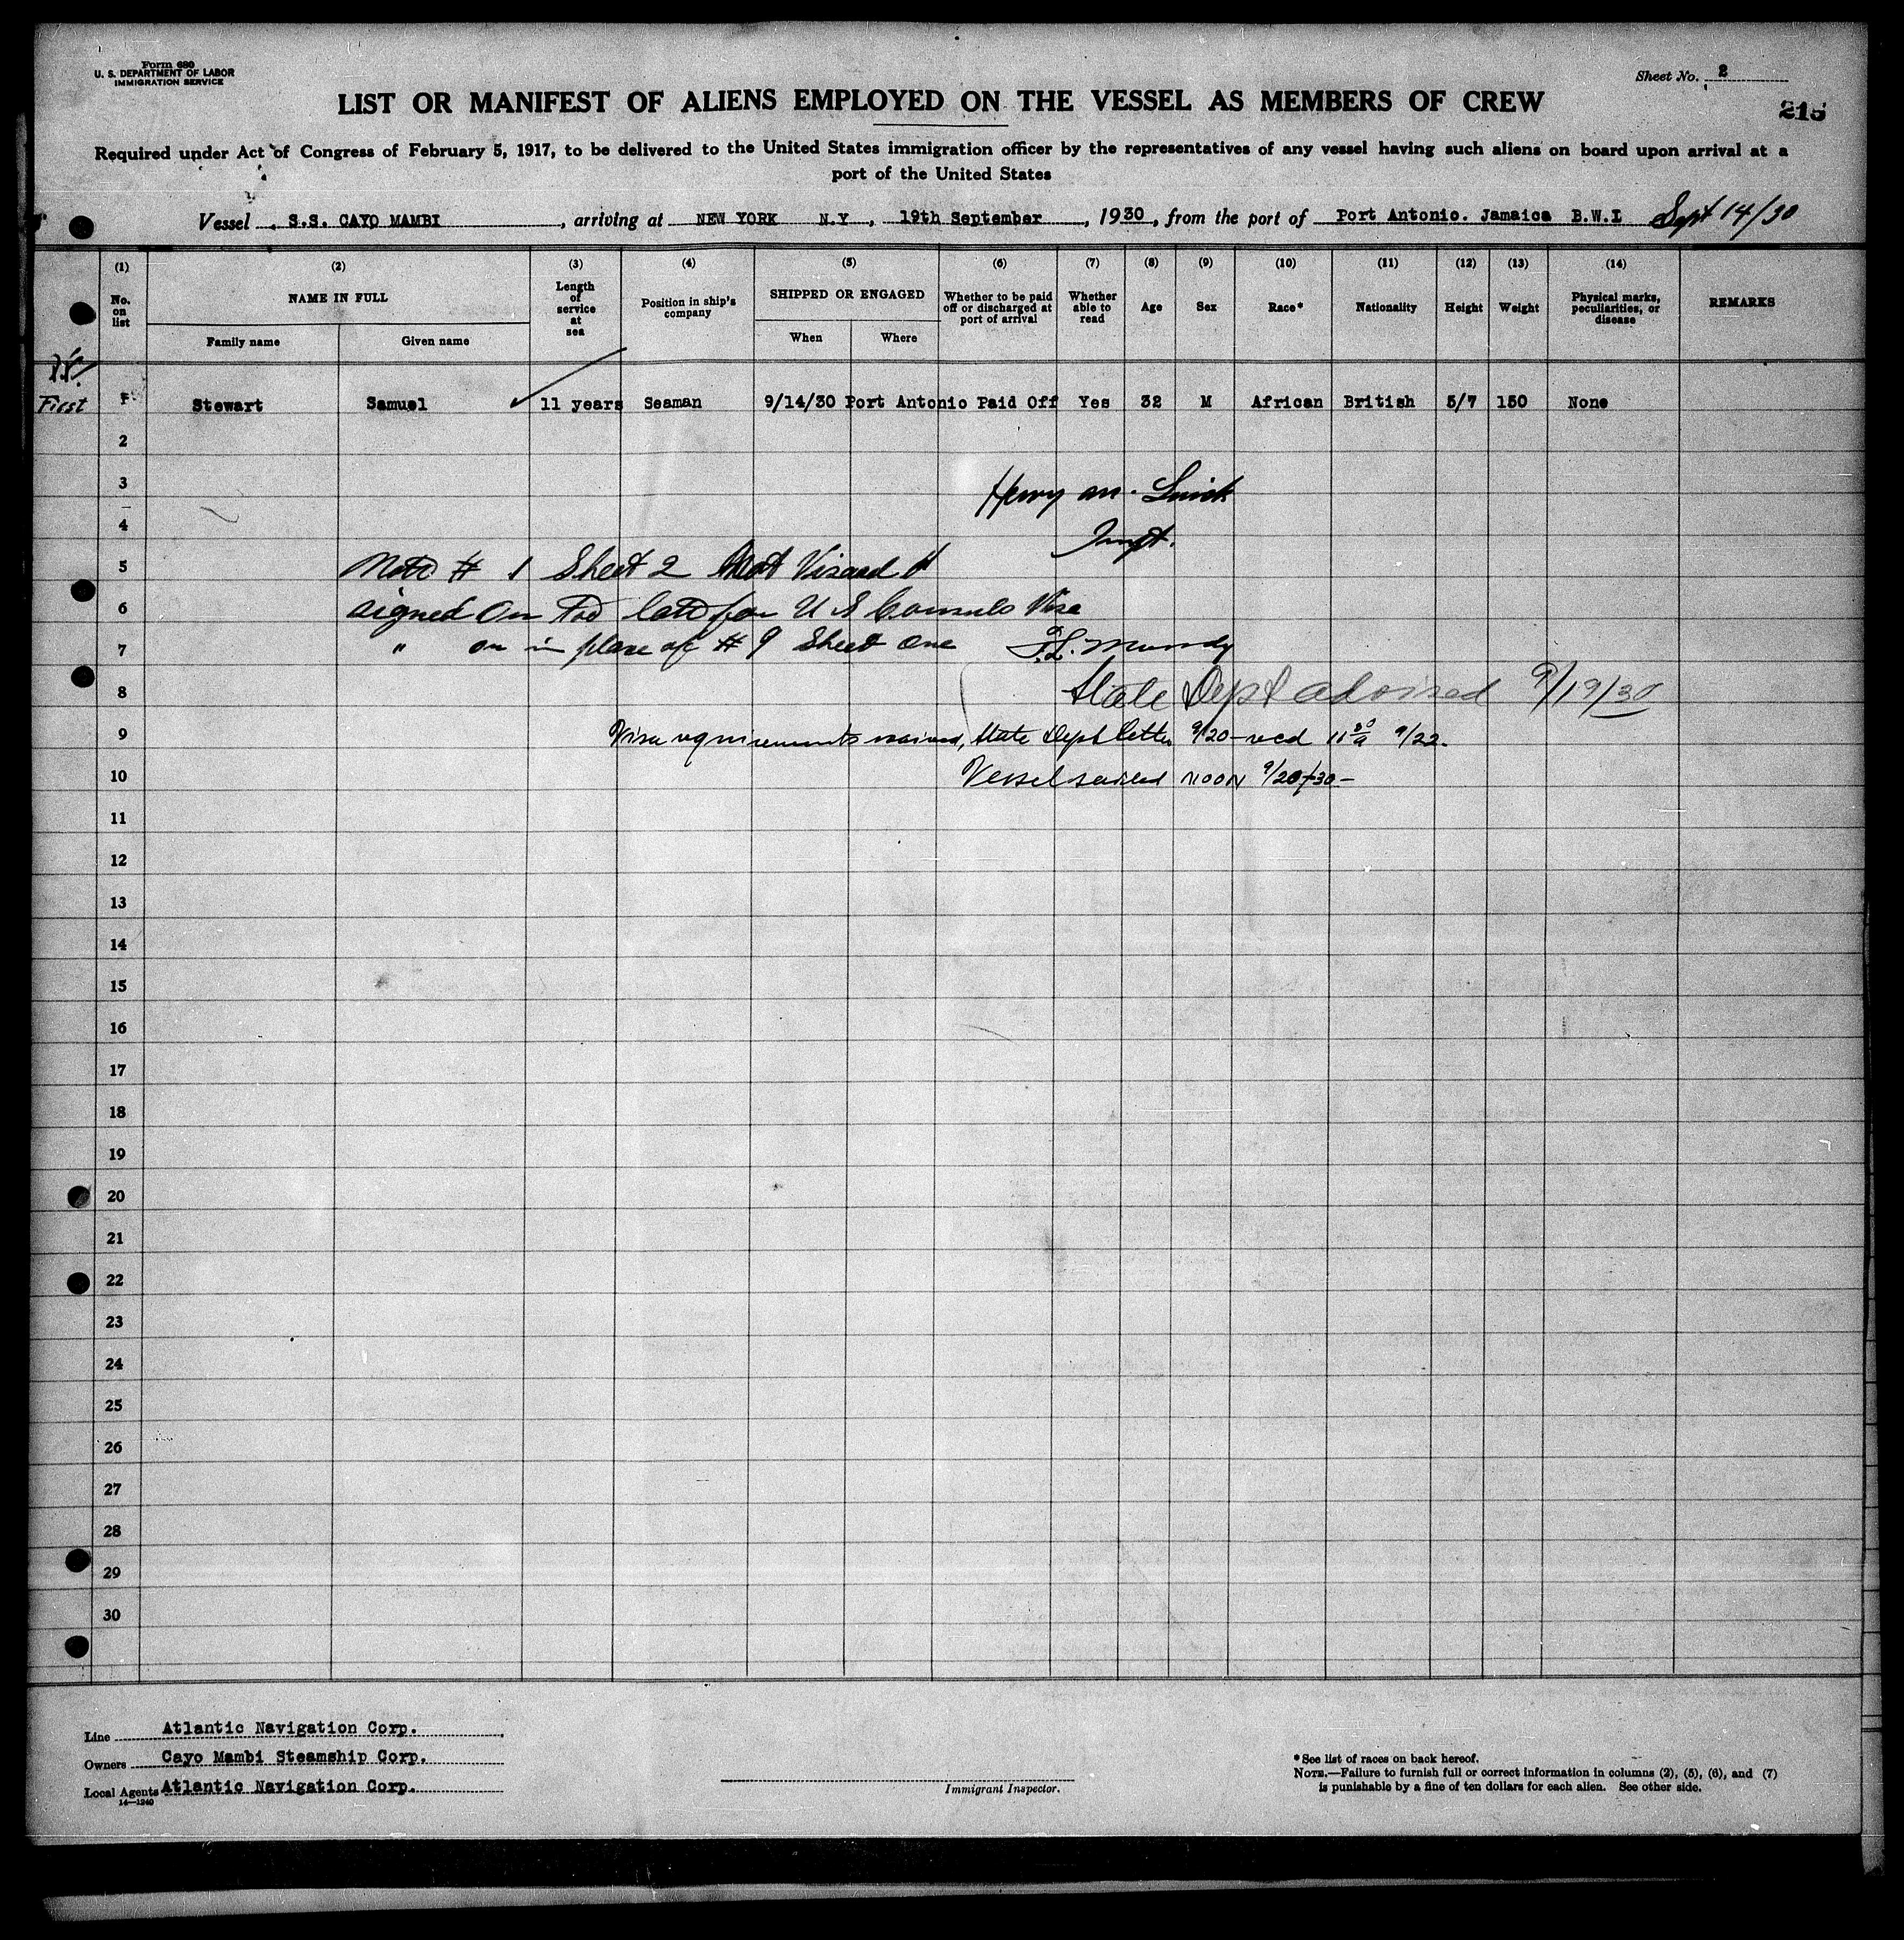 Form 680
U. S. DEPARTMENT OF LABOR
IMMIGRATION SERVICE
Sheet No. 2
215
LIST OR MANIFEST OF ALIENS EMPLOYED ON THE VESSEL AS MEMBERS OF CREW
Required under Act of Congress of February 5, 1917, to be delivered to the United States immigration officer by the representatives of any vessel having such aliens on board upon arrival at a
port of the United States
Vessel S.S. CAYO MAMBI, arriving at NEW YORK N.Y, 19th September, 1930, from the port of Port Antonio. Jamaica B.W.I Sept 14/30
(1) (2) (3) (4) (5) (6) (7) (8) (9) (10) (11) (12) (13) (14)
No. on list NAME IN FULL Family name Given name Length of service at sea Position in ship's company SHIPPED OR ENGAGED When Where Whether to be paid off or discharged at port of arrival Whether able to read Age Sex Race* Nationality Height Weight Physical marks, peculiarities, or disease REMARKS
First 1 Stewart Samuel 11 years Seaman 9/14/30 Port Antonio Paid Off Yes 32 M African British 5/7 150 None
2
3 Henry M.
4 Inspt.
5 Note # 1 Sheet 2 Not Visaed
6 signed on too late for U S Consuls Visa
7 " on in place of # 9 Sheet One Mundy
8 State Dept advised 9/19/30
9 Visa requirements waived, State Dept letter 9/20 - recd 11 30 a 9/22.
10 Vessel sailed NOON 9/20/30 -
11
12
13
14
15
16
17
18
19
20
21
22
23
24
25
26
27
28
29
30
Line Atlantic Navigation Corp.
Owners Cayo Mambi Steamship Corp.
Local Agents Atlantic Navigation Corp.
14—1240
Immigrant Inspector.
* See list of races on back hereof.
NOTE.—Failure to furnish full or correct information in columns (2), (5), (6), and (7)
is punishable by a fine of ten dollars for each alien. See other side.